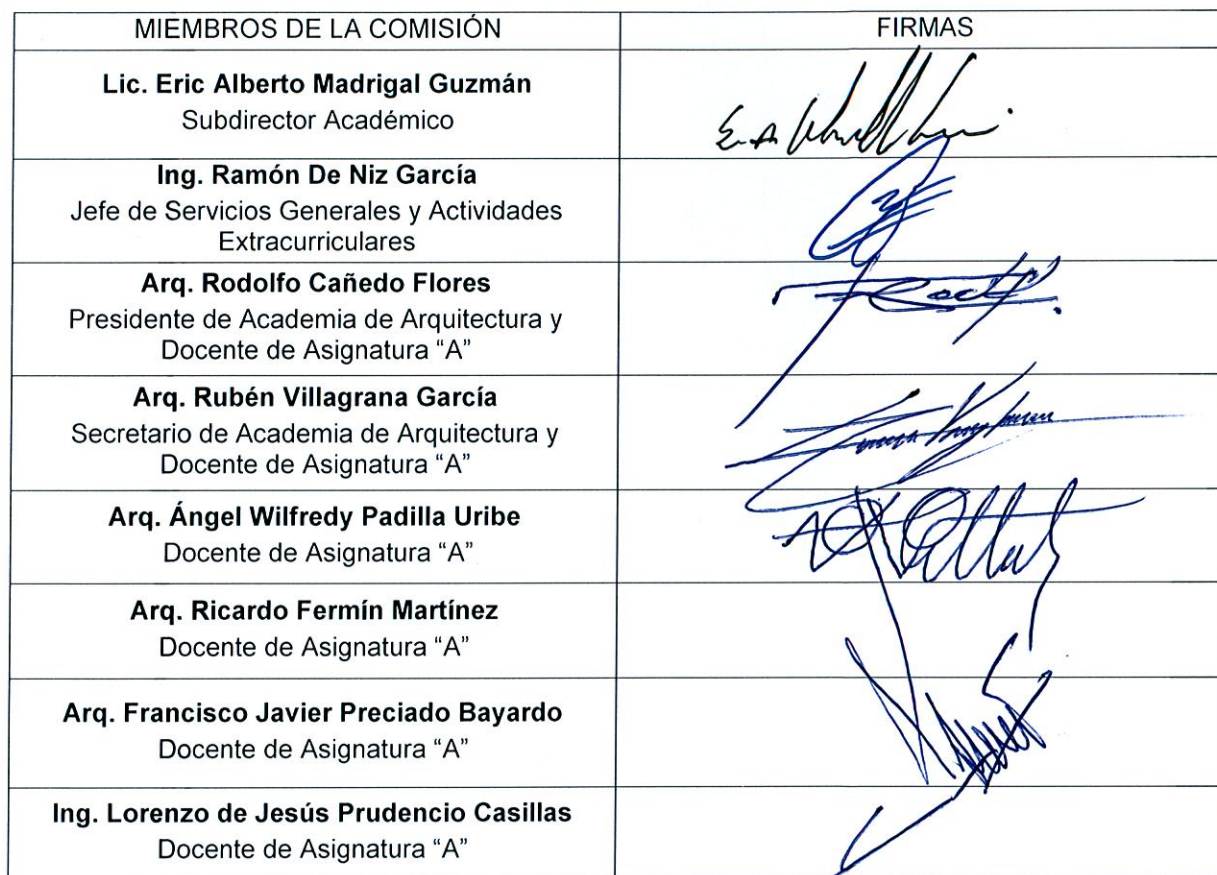 MIEMBROS DE LA COMISIÓN
FIRMAS
Lic. Eric Alberto Madrigal Guzmán
Subdirector Académico
Ing. Ramón De Niz García
Jefe de Servicios Generales y Actividades
Extracurriculares
Arq. Rodolfo Cañedo Flores
Presidente de Academia de Arquitectura y
Docente de Asignatura “A”
Arq. Rubén Villagrana García
Secretario de Academia de Arquitectura y
Docente de Asignatura “A”
Arq. Ángel Wilfredy Padilla Uribe
Docente de Asignatura “A”
Arq. Ricardo Fermín Martínez
Docente de Asignatura “A”
Arq. Francisco Javier Preciado Bayardo
Docente de Asignatura “A”
Ing. Lorenzo de Jesús Prudencio Casillas
Docente de Asignatura “A”